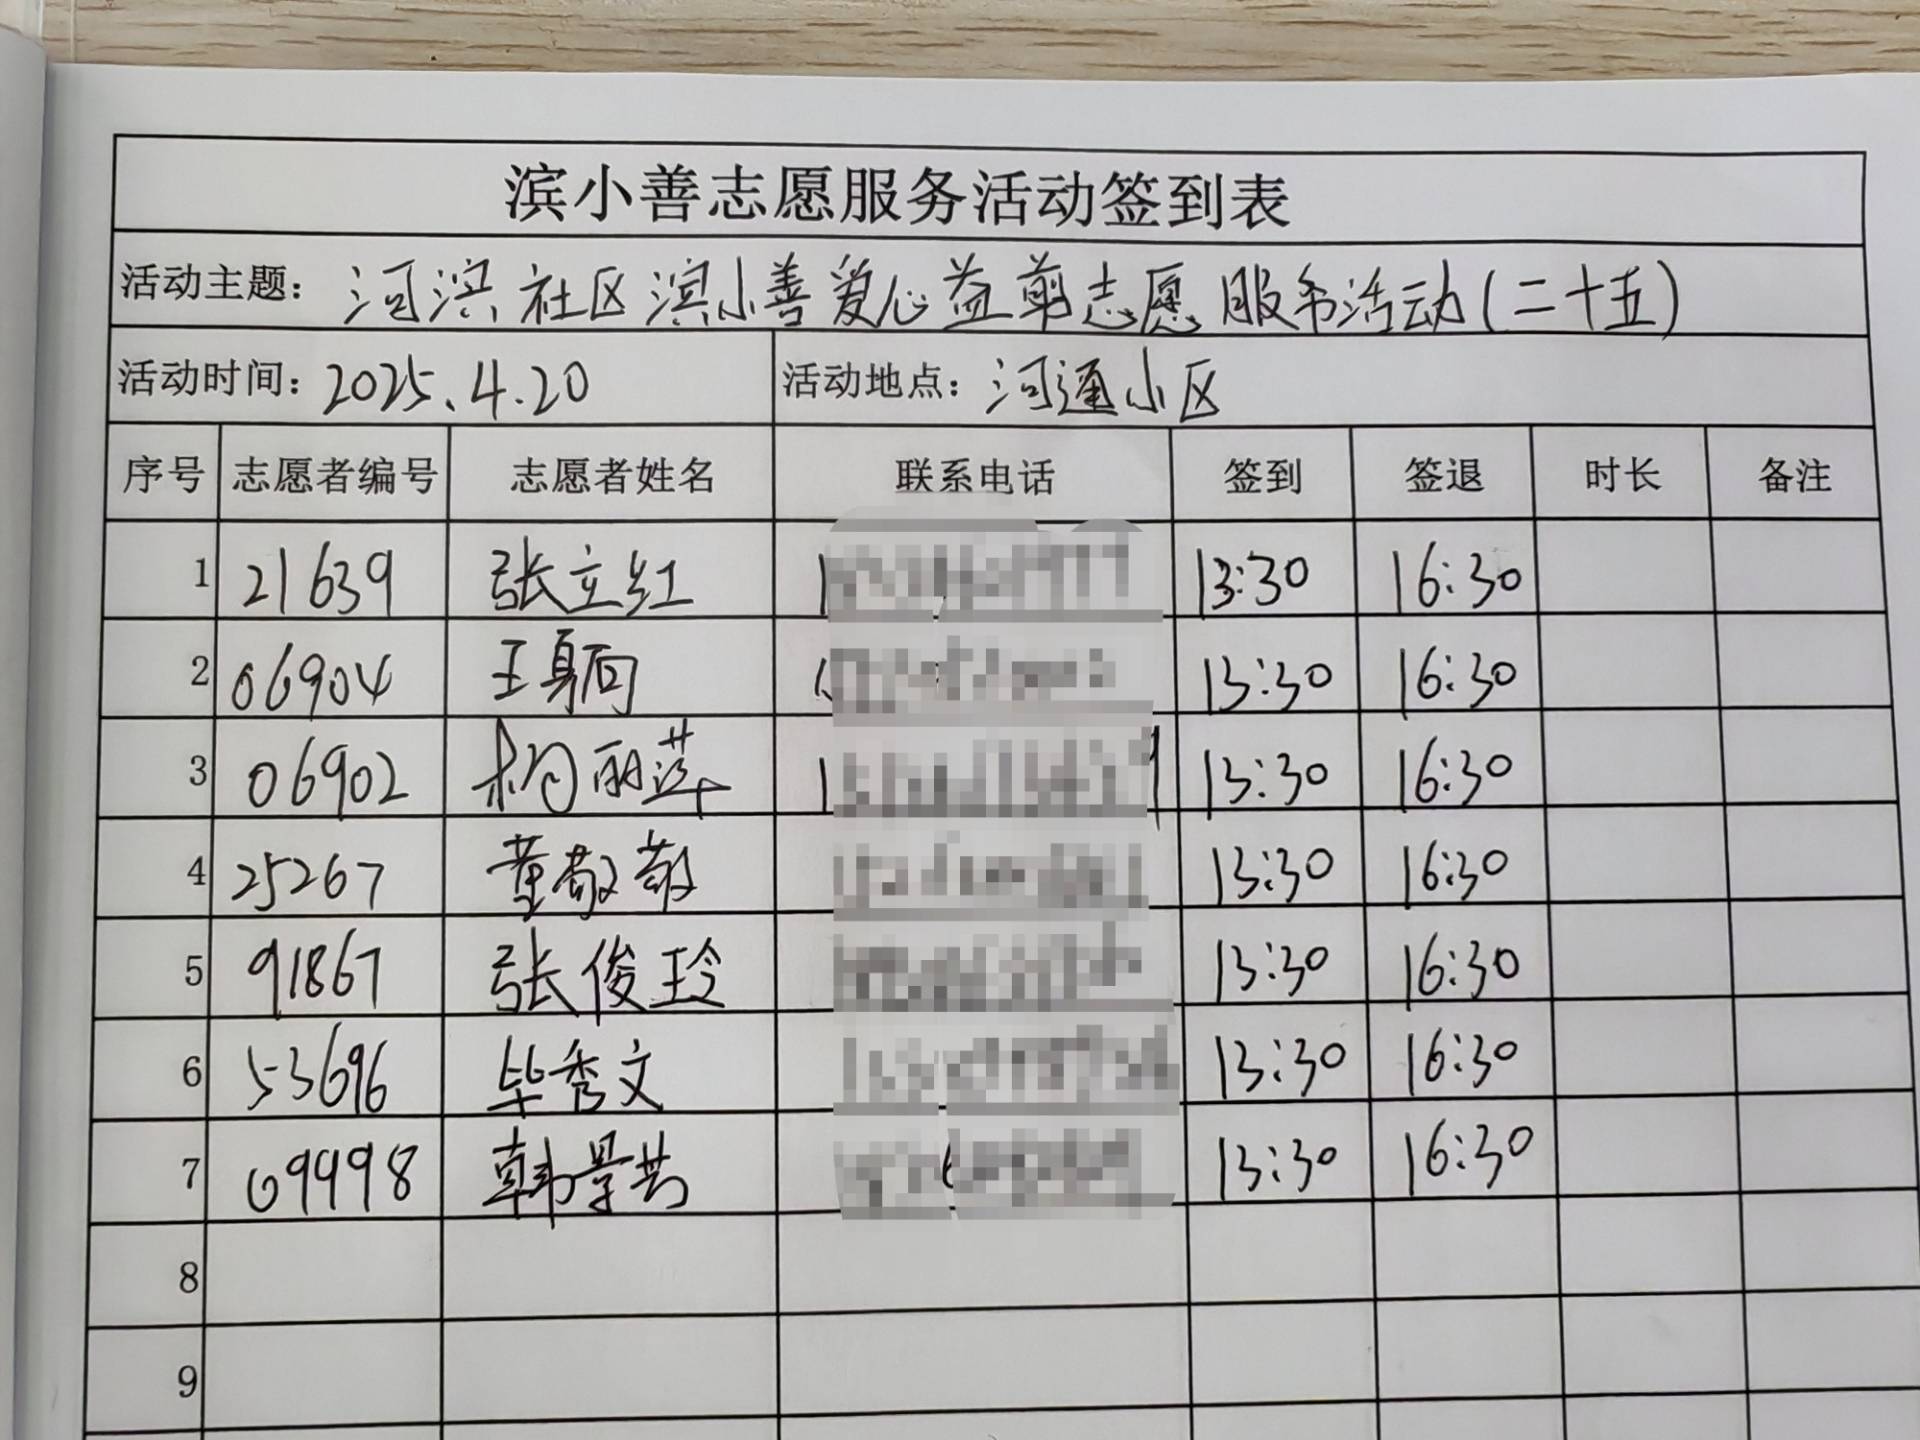 滨小善志愿服务活动签到表
活动主题: 河滨社区滨小善爱心益剪志愿服务活动(二十五)
活动时间: 2025.4.20 活动地点: 河通小区
序号 志愿者编号 志愿者姓名 联系电话 签到 签退 时长 备注
1 21639 张立红 13:30 16:30
2 06904 王 13:30 16:30
3 06902 杨丽萍 13:30 16:30
4 25267 董敬敬 13:30 16:30
5 91867 张俊玲 13:30 16:30
6 53696 毕秀文 13:30 16:30
7 09998 韩景芸 13:30 16:30
8
9